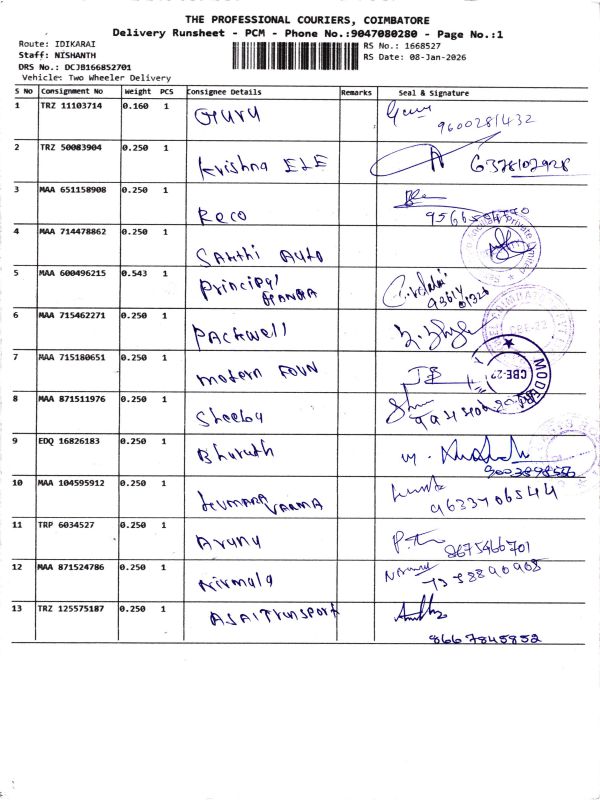 THE PROFESSIONAL COURIERS, COIMBATORE
Delivery Runsheet - PCM - Phone No.:9047080280 - Page No.:1
Route: IDIKARAI
RS No.: 1668527
Staff: NISHANTH
RS Date: 08-Jan-2026
DRS No.: DCJB166852701
Vehicle: Two Wheeler Delivery
S No Consignment No Weight PCS Consignee Details Remarks Seal & Signature
1 TRZ 11103714 0.160 1 Guru
9600281432
2 TRZ 50083904 0.250 1 Krishna ELE
6378102928
3 MAA 651158908 0.250 1 Reco
4 MAA 714478862 0.250 1 Sakthi Auto
5 MAA 600496215 0.543 1 Principal
6 MAA 715462271 0.250 1 Packwell
CBE-22
7 MAA 715180651 0.250 1 Modern FOUN
CBE-22
8 MAA 871511976 0.250 1 Sheeba
9 EDQ 16826183 0.250 1 Bharath
10 MAA 104595912 0.250 1 Kumara Varma
9633706544
11 TRP 6034527 0.250 1 Aruna
8675466701
12 MAA 871524786 0.250 1 Nirmala
13 TRZ 125575187 0.250 1 AJAI Transport
8667845852